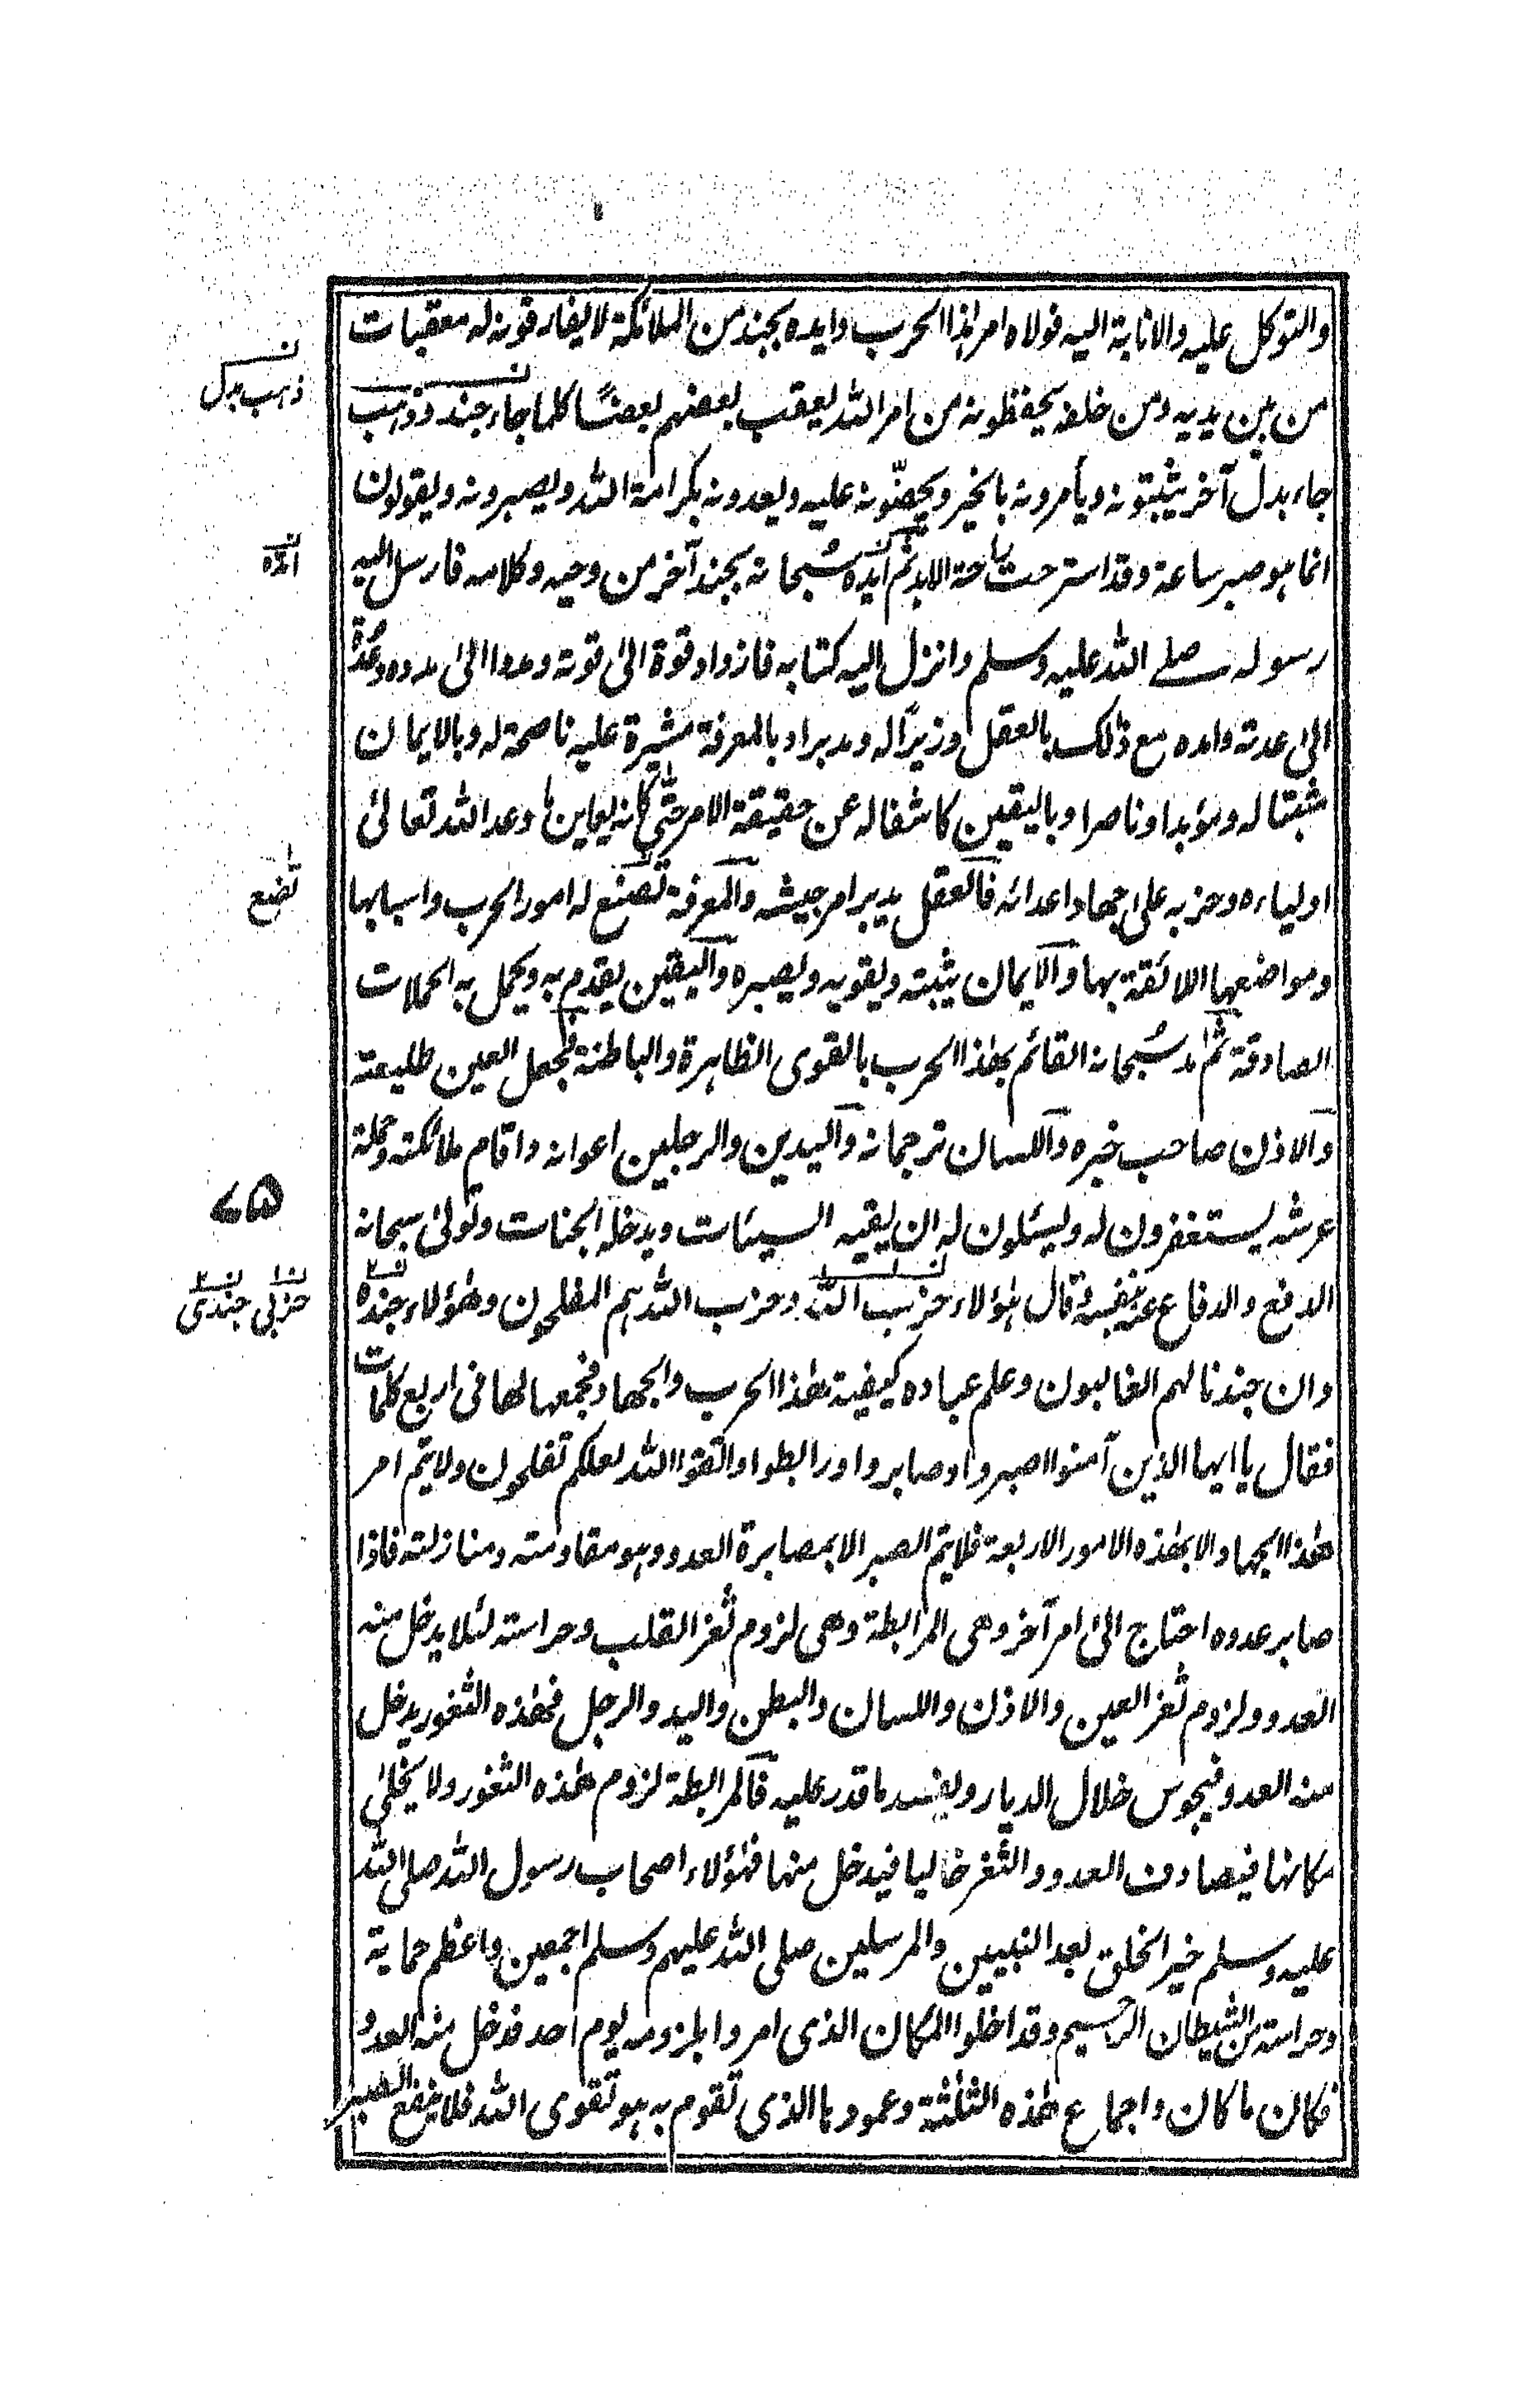 والتوكل عليه والانابة اليه فولاه امر هذا الحرب وايده بجند من الملائكة لا يفارقونه له معقبات
من بين يديه ومن خلفه يحفظونه من امر الله يعقب بعضهم بعضًا كلما جاء جند وذهب
ذهب بدل
جاء بدل آخر يثبتونه ويأمرونه بالخير ويحضّونه عليه ويعدونه بكرامة الله ويصبرونه ويقولون
انما هو صبر ساعة وقد استرحت راحة الابد ثم ايده سُبحانه بجند آخر من وحيه وكلامه فارسل اليه
امده
رسوله صلے الله عليه وسلم وانزل اليه كتابه فازداد قوة الىٰ قوته ومددا الىٰ مدده وعُدة
الىٰ عدته وامده مع ذٰلك بالعقل وزيرًا له ومدبرا وبالمعرفة مشيرة عليه ناصحة له وبالايمان
مثبتا له ومؤيدا وناصرا وباليقين كاشفا له عن حقيقة الامر حتّٰى كانه يعاين ما وعد الله تعالىٰ
اولياءه وحزبه علىٰ جهاد اعدائه فالعقل يدبر امر جيشه والمعرفة تصنع له امور الحرب واسبابها
تضع
ومواضعها اللائقة بها والايمان يثبته ويقويه ويصبره واليقين يقدم به ويحمل به الحملات
الصادقة ثم امد سُبحانه القائم بهٰذا الحرب بالقوى الظاهرة والباطنة فجعل العين طليعته
والاذن صاحب خبره واللسان ترجمانه واليدين والرجلين اعوانه واقام ملائكته وحملة
۷۵
عرشه يستغفرون له ويسئلون له ان يقيه السيئات ويدخله الجنات وتولىٰ سبحانه
الدفع والدفاع عنه بنفسه وقال هٰؤلاء حزب الله وحزب الله هم المفلحون وهٰؤلاء جنده
حزبى جندى
وان جندنا لهم الغالبون وعلم عباده كيفية هٰذا الحرب والجهاد فجمعها لها فى اربع كلمات
فقال يا ايها الذين آمنوا اصبروا وصابروا ورابطوا واتقوا الله لعلكم تفلحون ولا يتم امر
هٰذا الجهاد الا بهٰذه الامور الاربعة فلا يتم الصبر الا بمصابرة العدو وهو مقاومته ومنازلته فاذا
صابر عدوه احتاج الىٰ امر آخر وهى المرابطة وهى لزوم ثغر القلب وحراسته لئلا يدخل منه
العدو ولزوم ثغر العين والاذن واللسان والبطن واليد والرجل فهٰذه الثغور يدخل
منه العدو فيجوس خلال الديار ويفسد ما قدر عليه فالمرابطة لزوم هٰذه الثغور ولا يخلىٰ
مكانها فيصادف العدو والثغر خاليا فيدخل منها فهٰؤلاء اصحاب رسول الله صلى الله
عليه وسلم خير الخلق بعد النبيين والمرسلين صلى الله عليهم وسلم اجمعين واعظم حماية
وحراسته من الشيطان الرجيم وقد اخلوا المكان الذى امروا بلزومه يوم احد فدخل منه العدو
فكان ما كان واجماع هٰذه الثلٰثة وعمودها الذى تقوم به هو تقوى الله فلا ينفع الصبر